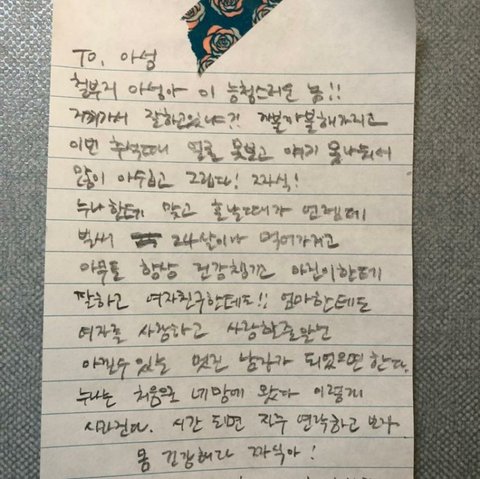 To. 아성
철부지 아성아 이 능청스러운 놈!!
거기가서 잘하고있냐?!
이번 추석때 얼굴 못보고 얘기 못나눠서
많이 아쉽고 그립다! 짜식!
누나한테 맞고 혼날때가 언젠데
벌써 24살이나 먹어가지고
아무튼 항상 건강챙기고
잘하고 여자친구한테도!! 엄마한테도
여자를 사랑하고 사랑할줄알고
아낄수있는 멋진 남자가 되었으면 한다.
누나는 처음으로 네맘에 왔다 이렇게
시간되면 자주 연락하고 보자
몸 건강해라 짜식아!